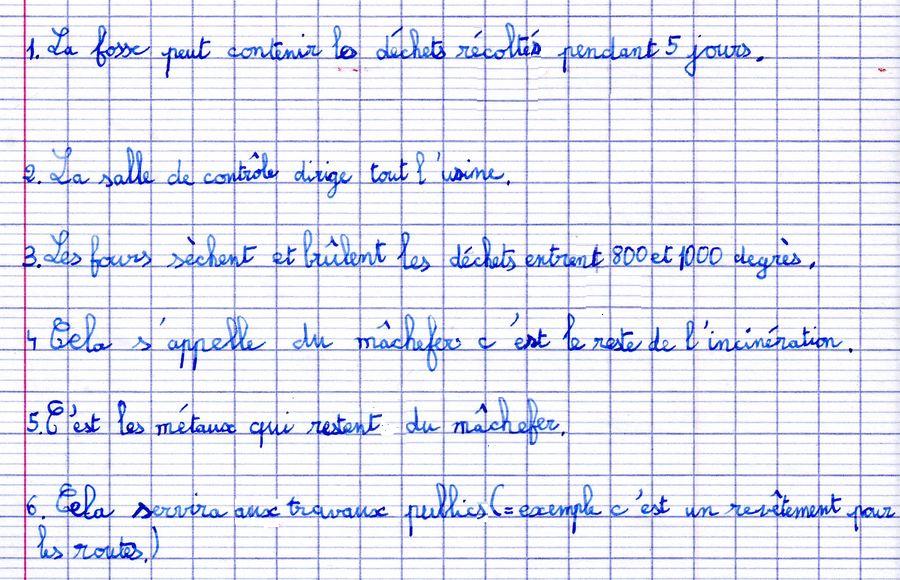 1. La fosse peut contenir les déchets récoltés pendant 5 jours.
2. La salle de contrôle dirige tout l'usine.
3. Les fours sèchent et brûlent les déchets entrent 800 et 1000 degrès.
4 Cela s'appelle du mâchefer c'est le reste de l'incinération.
5. C'est les métaux qui restent du mâchefer.
6. Cela servira aux travaux publics (= exemple c'est un revêtement pour
les routes.)